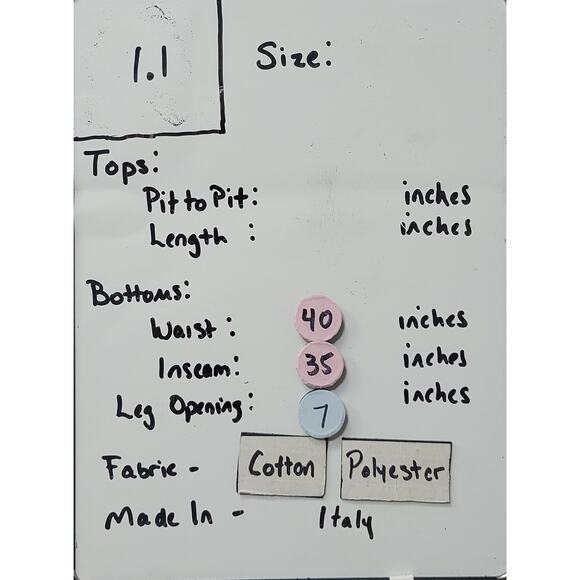 1.1
Size:
Tops:
Pit to Pit: inches
Length : inches
Bottoms:
Waist : 40 inches
Inseam: 35 inches
Leg Opening: 7 inches
Fabric - Cotton Polyester
Made In - Italy